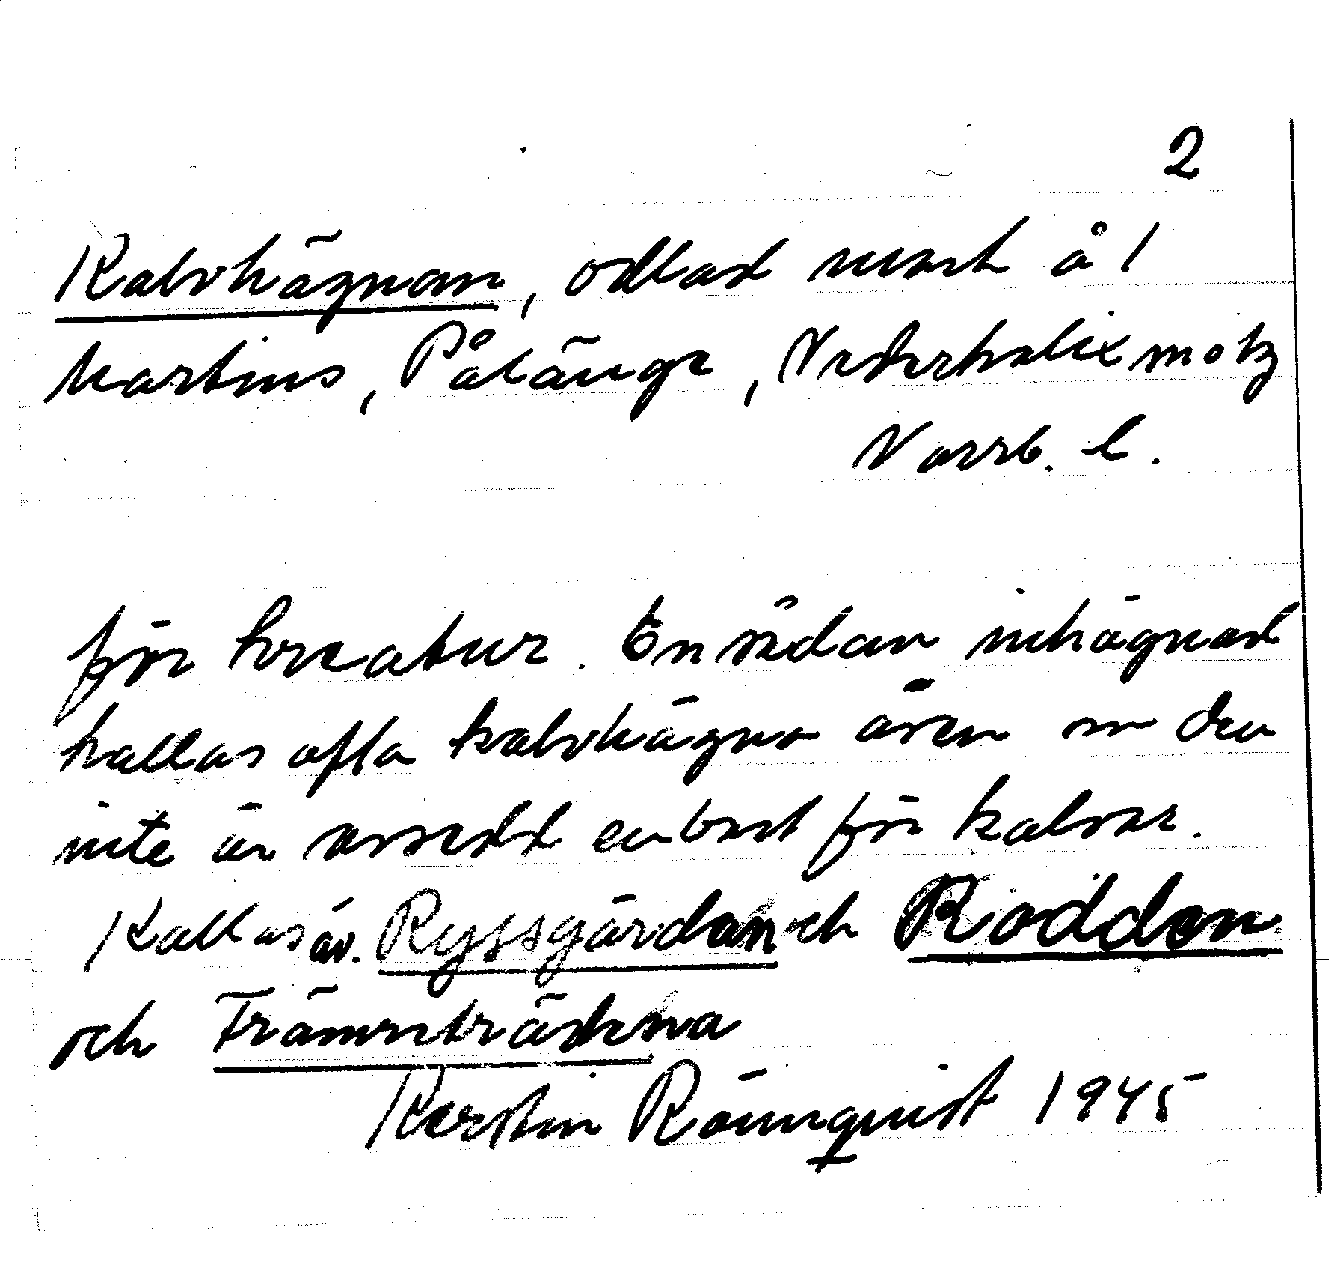 2
Kalvhägnan, odlad mark å 1
Martins, Pålänge, Nederkalix sn
Norrb. l.
för kreatur. En sådan inhägnad
kallas ofta kalvhägna även om den
inte är avsedd enbart för kalvar.
Kallas äv. Ryssgärdan och Roddan
och Främreträdena
Kerstin Rönnquist 1945